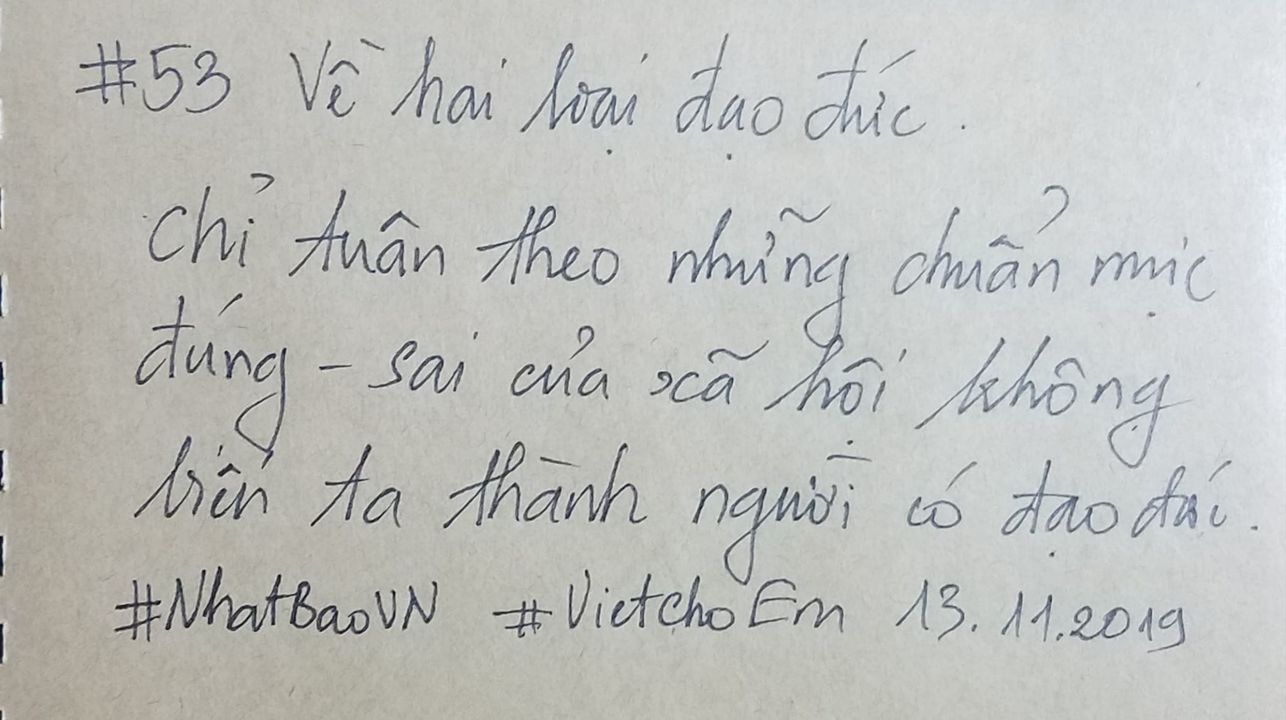 #53 Về hai loại đạo đức.
Chỉ tuân theo những chuẩn mực
đúng - sai của xã hội không
biến ta thành người có đạo đức.
#NhatBaoVN #VietchoEm 13.11.2019